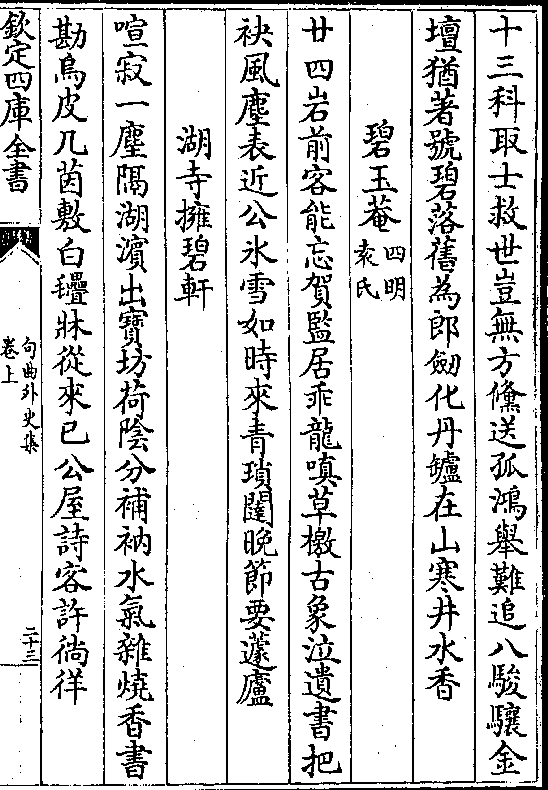 十三科取士救世豈無方儵送孤鴻舉難追八駿驤金
壇猶著號碧落舊為郎劒化丹鑪在山寒井水香
碧玉菴四明袁氏
廿四岩前客能忘賀監居乖龍嗔草檄古象泣遺書把
袂風塵表近公氷雪如時來青瑣闥晚節要蘧廬
湖寺擁碧軒
喧寂一塵隔湖濵出寶坊荷陰分補衲水氣雜燒香書
勘烏皮几茵敷白㲲牀從來已公屋詩客許徜徉
欽定四庫全書
句曲外史集
卷上
二十三